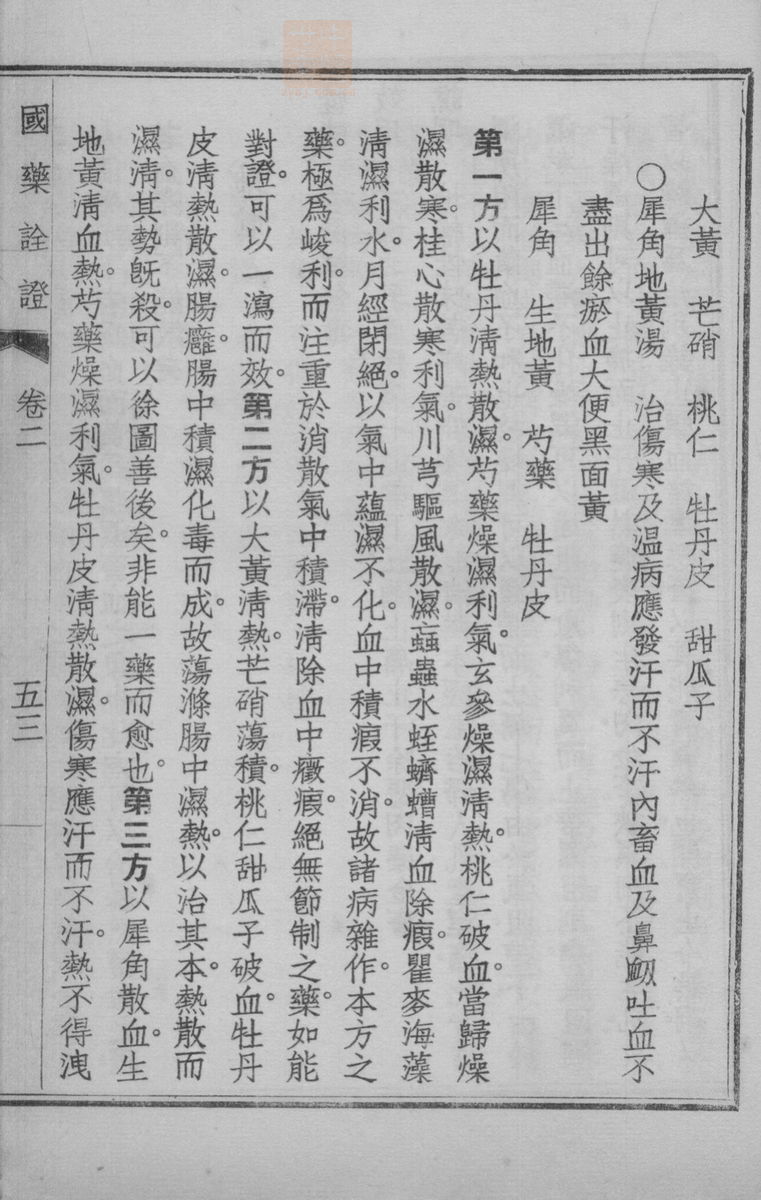 大黃　芒硝　桃仁　牡丹皮　甜瓜子
○犀角地黃湯　治傷寒及温病應發汗而不汗內畜血及鼻衂吐血不
盡出餘瘀血大便黑面黃
犀角　生地黃　芍藥　牡丹皮
第一方以牡丹淸熱散濕。芍藥燥濕利氣。玄參燥濕淸熱。桃仁破血。當歸燥
濕散寒。桂心散寒利氣。川芎驅風散濕。蝱蟲水蛭蠐螬淸血除瘕。瞿麥海藻
淸濕利水。月經閉絕。以氣中蘊濕不化。血中積瘕不消。故諸病雜作。本方之
藥。極爲峻利。而注重於消散氣中積滯。淸除血中癥瘕。絕無節制之藥。如能
對證。可以一瀉而效。第二方以大黃淸熱。芒硝蕩積。桃仁甜瓜子破血。牡丹
皮淸熱散濕。腸癰。腸中積濕化毒而成。故蕩滌腸中濕熱。以治其本。熱散而
濕淸。其勢旣殺。可以徐圖善後矣。非能一藥而愈也。第三方以犀角散血。生
地黃淸血熱。芍藥燥濕利氣。牡丹皮淸熱散濕。傷寒應汗而不汗。熱不得洩
國藥詮證　卷二　五三